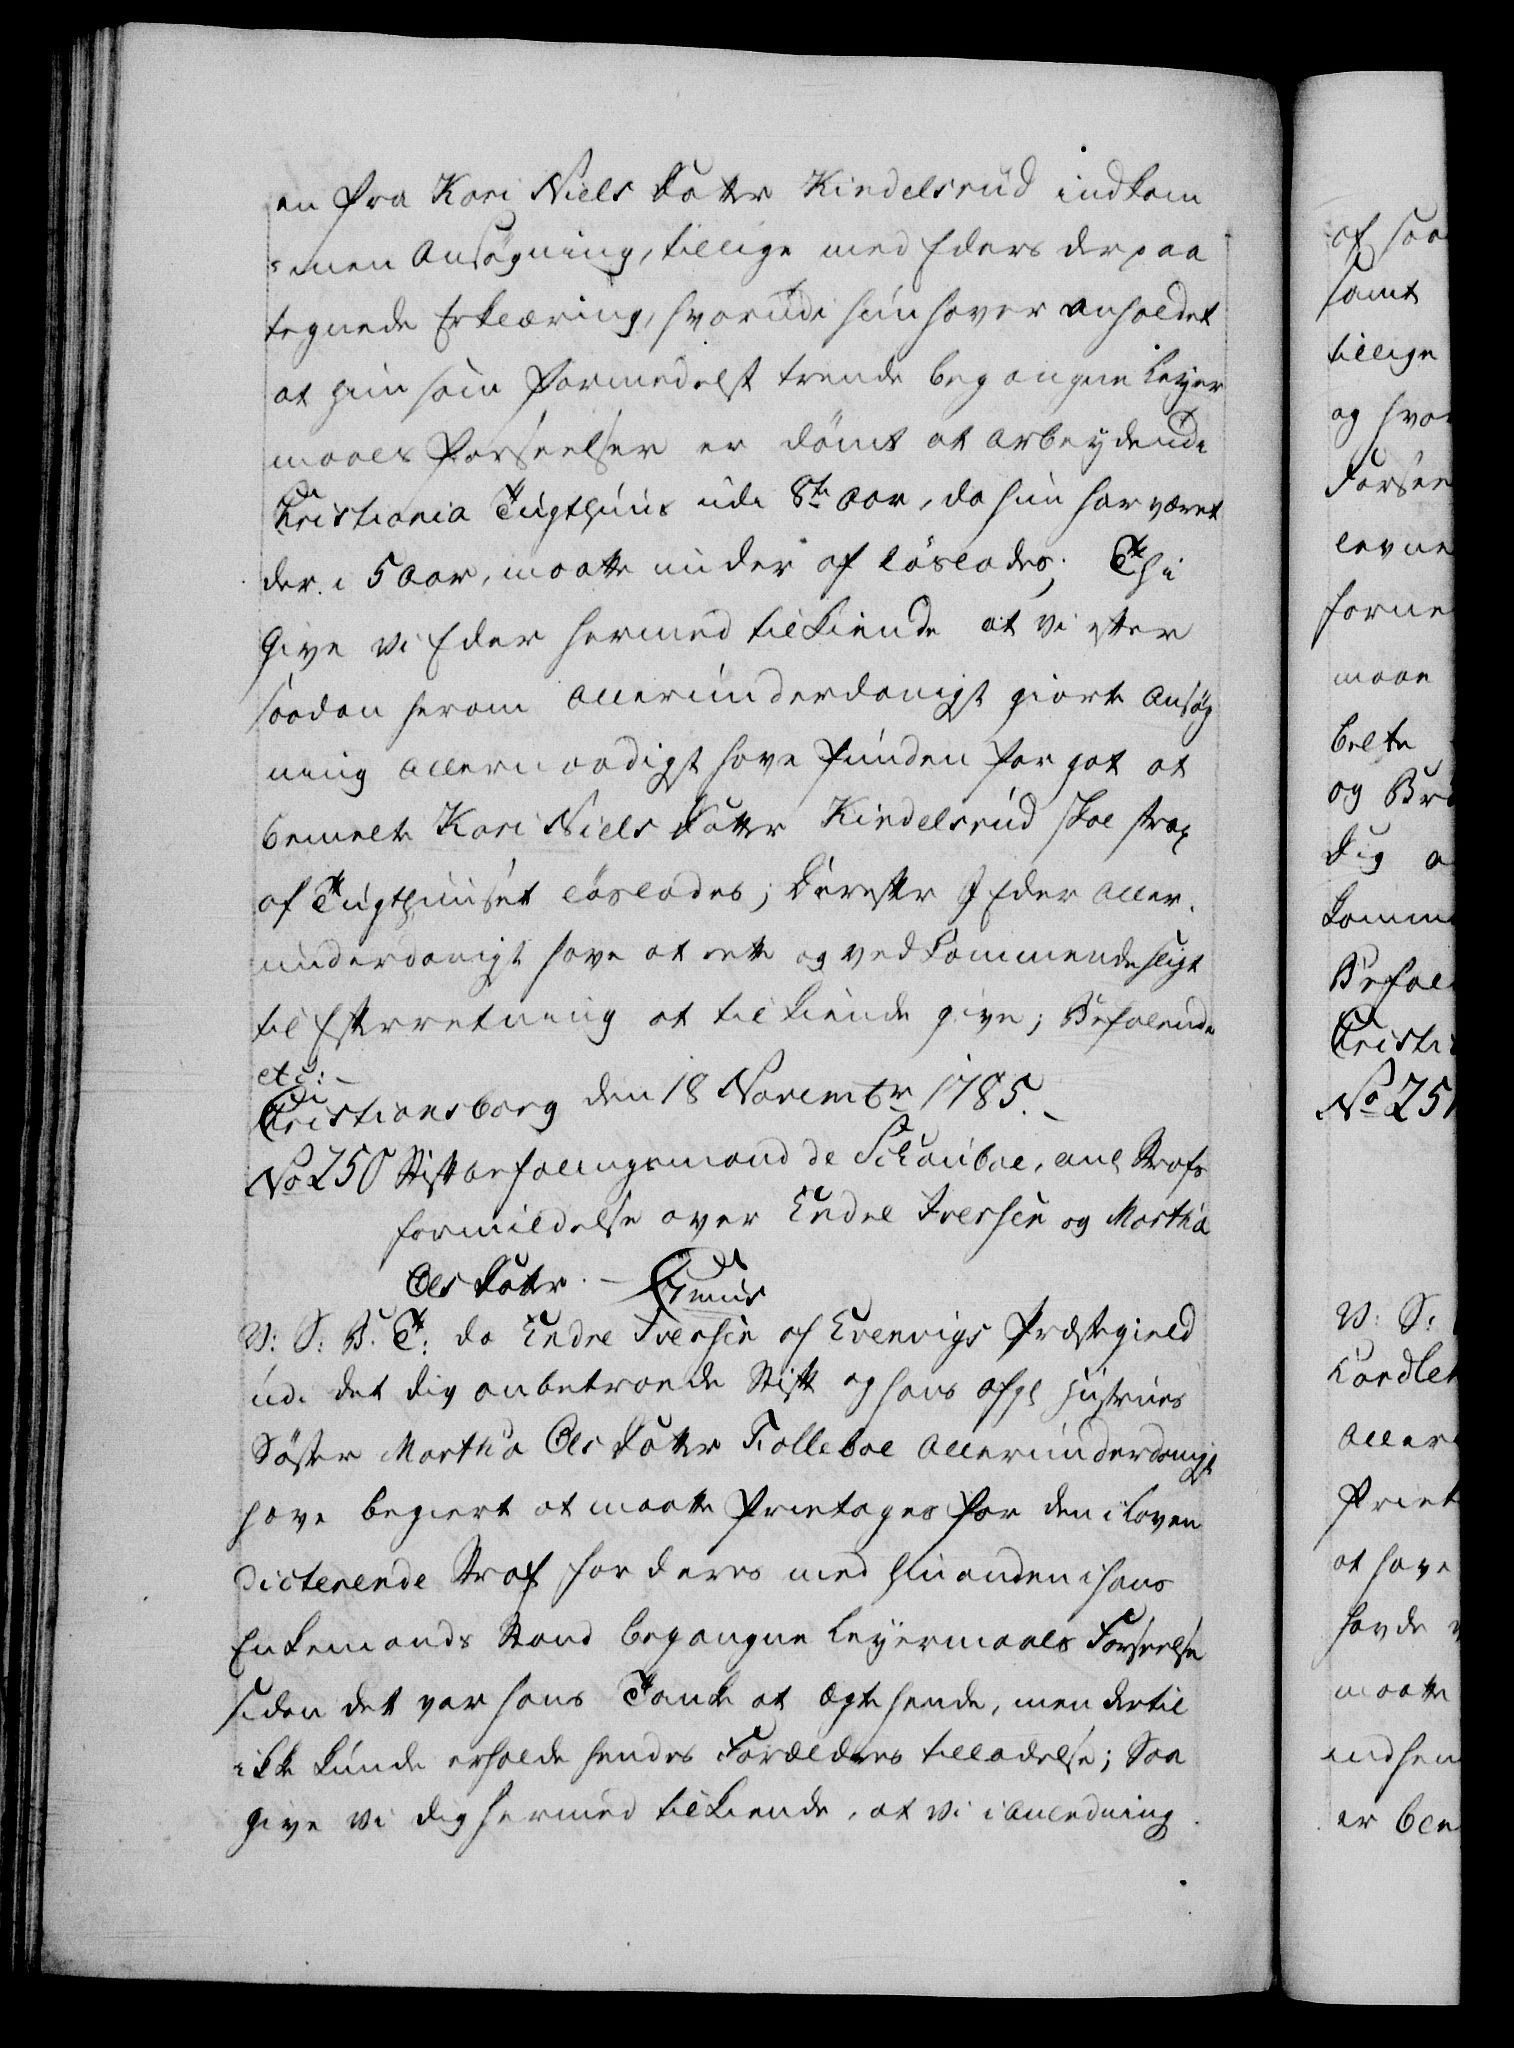 en fra Kari Niels Datter Kindelsrud indkom
-men Ansøgning, tillige med Eders derpaa
tegnede Erklæring, hvorudi hun haver anholdet
at hun som formedelst trende begangne Leyer
maals Forseelser er dømt at arbeyde udi
Christiania Tugthuus udi 8te Aar, da hun har været
der i 5 Aar, maatte derudaf løslades; Thi
Give vi Eder hermed tilkiende at vi efter
saadan herom allerunderdanigst giorte Ansøg
ning allernaadigst have funden for got at
bemelte Kari Niels Datter Kindelsrud skal strax
af Tugthuuset løslades; Derefter I Eder aller-
underdanigst have at rette og vedkommende sligt
til Efterretning at tilkiende give; Befalende
etc:
Christiansborg den 18 Novembr 1785.
No 250 Stiftbefalingsmand de Schouboe, anl Strafs
formildelse over Endre Iversen og Martha
Ols Datter.
V: S: B: T: da Endre Iversen af Evenvigs Præstegield
udi det dig anbetroede Stift og hans afg. Hustrues
Søster Martha Ols Datter Tolleboe allerunderdanigst
have begiert at maatte fritages for den i Loven
dicterende Straf for deres med hinanden i hans
Enkemands Stand begangne Leyermaals Forseelse
siden det var hans Tanke at ægte hende, men dertil
ikke kunde erholde hendes Forældres tilladelse; Saa
give vi dig hermed tilkiende, at vi i anledning
af saa
samt
tillige
og hvor
Forseel
levne
forne
maae
belte
og Br
dig a
komme
Befal
Christi
No 251
V: S:
Aller
friet
at have
havde
maatte
indsen
er ble